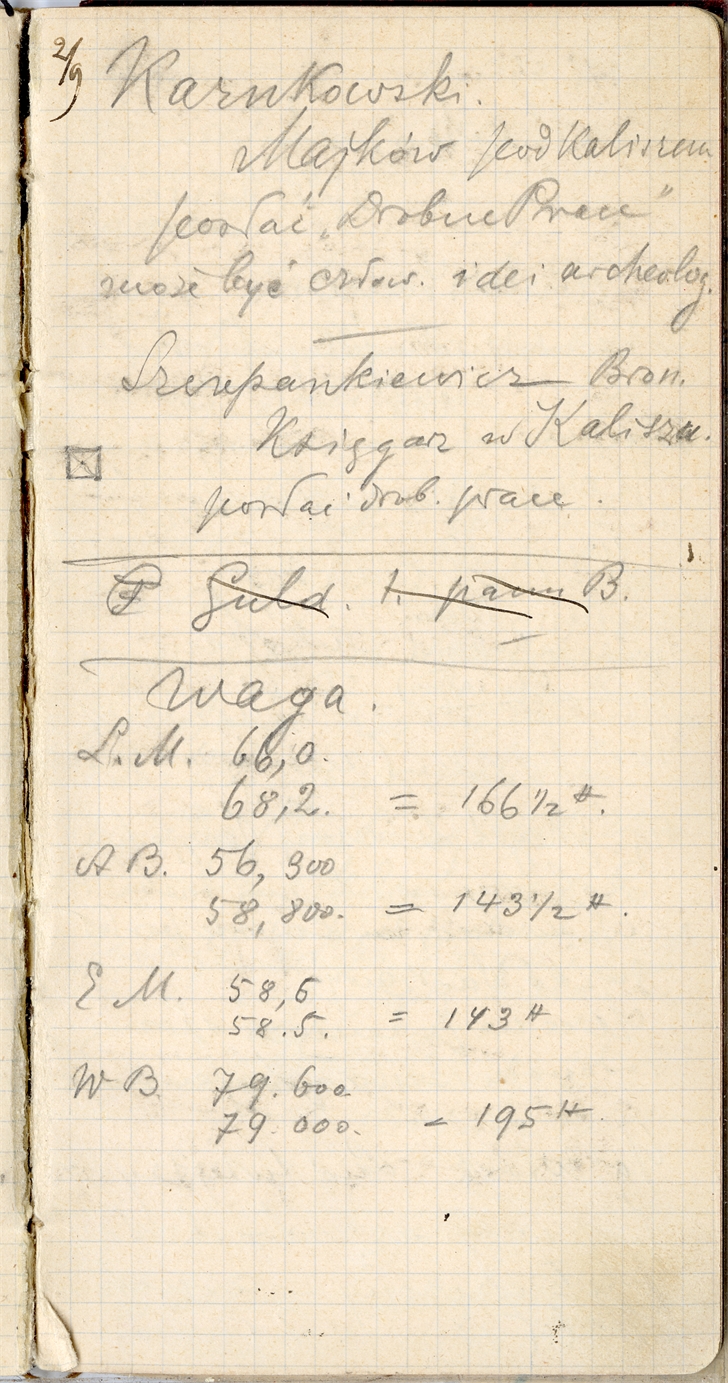 2/9
Karnkowski.
Majków pod Kaliszem
posłać „Drobne Prace”
może być człow. idei archeolog.
Szczepankiewicz Bron.
Księgarz w Kaliszu.
posłać drob. prace.
Guld. t. B.
Waga.
L. M. 66,0.
68,2. = 166 1/2 ℔.
A B. 56, 900
58, 800. = 143 1/2 ℔.
E M. 58,6
58.5. = 143 ℔
W B. 79. 600
79. 000. = 195 ℔